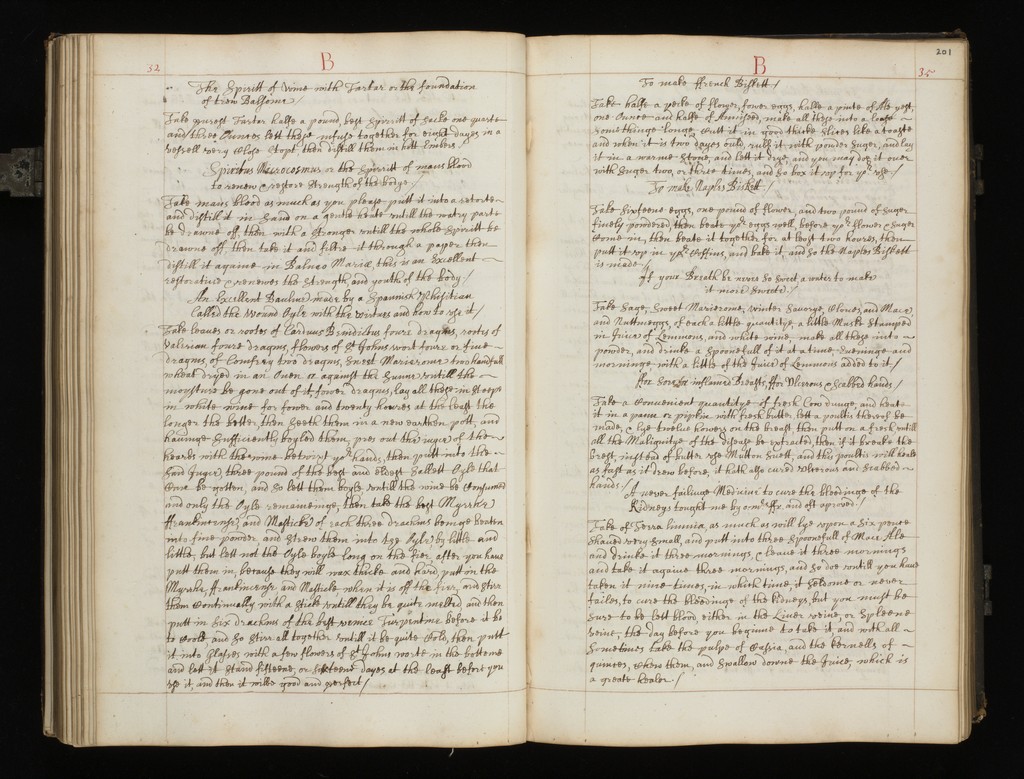 32
B
The Spiritt of Wine with Tartar or the foundation
of trew Balsome /
Take purest Tartar halfe a pound, best Spirritt of Sacke one quarte
and three Ounces lett these infuse together for eight dayes in a
vessell very Close Stopt then distill them in hott Embers /
Spiritus Microcosmus, or the Spiritt of mans blood
to renew & restore Strength of the bodye /
Take mans blood as much as you please putt it into a retorte
and distill it in Sand on a gentle heate untill the watry parte
be drawne off, then with a Stronger untill the whole Spiritt be
drawne off then take it and filtre it through a paper then
distill it againe in Balneo Mariæ, this is an Excellent
restorative & renewes the Strength, and youth of the body /
An Excellent Baulme made by a Spannish Phisitian
Called the Wound Oyle with the Vertues and how to use it /
Take leaves or rootes of Carduus Bendictus foure dragms, rootes of
Valirian foure dragms, flowers of St Johns wort foure or five
dragms, of Comfrey two dragms, Sweet Marierome two handfull
wheat dryed in an Oven or against the Sunne untill the
moysture be gone out of it, fower dragms, lay all these in Steepe
in white wine for fower and twenty howres at the least the
longer the better, then Seeth them in a new earthen pott, and
haueinge Sufficiently boyled them, pres out the iuger of the
hearbs with the wine betwixt yor hands, then putt into the
said Juger, three pound of the best and eldest Sallett Oyle that
Can be gotten, and so lett them boyle untill the wine be Consumed
and only the Oyle remaineinge, then take the best Myrrhe
ffrankincense, and Mastick of each three drachms beinge beaten
into fine powder, and Strew them into the Oyle by little and
little, but lett not the Oyle boyle long on the fier after you haue
putt them in, because they will wax thicke and hard, putt in the
Myrrhe, ffrankincense and Mastick when it is off the fier, and Stirr
them Continually with a Stick untill they be quite melted and then
putt in Six drachms of the best Venice Turpentine before it be
to Coole and So Stirr all together untill it be quite Cold, then putt
it into Glasses with a few flowers of St Johns worte in the bottome
and lett it Stand fifteene, or Sixteene dayes at the least before you
use it, and then it wilbe good and perfect /
201
B
35
To make ffrench Biskett /
Take halfe a pecke of flower, fower eggs, halfe a pinte of Ale yest,
one Ounce and halfe of Anniseed, make all these into a loafe
somethinge longe, Cutt it in good thicke Slices like a toaste
and when it is two dayesould, rubb it with powder Suger, and lay
it in a warme Stove, and lett it drye, and you may doe it over
with Suger two, or three times, and so box it up for yor use /
To make Naples Biskett /
Take Sixteene eggs, one pound of flower, and two pound of Suger
finely powdered, then beate yor eggs well, before yor flower & Suger
Come in, then beate it together for at least two howres, then
putt it up in yor Coffins, and bake it, and So the Naples Biskett
is made /
If your Breath be never so Sweet a water to make
it more Sweete /
Take Sage, Sweet Marierome, Winter Saverye, Cloves, and Mace
and Nuttmeggs, of each a little quantitye, a little Muske Stamped
in Juice of Lemmons, and white wine, make all these into a
powder, and drinke a Spoonefull of it at a time, Eveninge and
morninge with a little of the Juice of Lemmons added to it /
ffor Sore & inflamed Breasts, ffor Ulcerous & Scabbed hands /
Take a Convenient quantitye of fresh Cow dunge, and heate
it in a panne or pipkin with fresh butter lett a poultis thereof be
made, & lye twelve howers on the brest, then putt on a fresh untill
all the Malignitye of the disease be extracted, then if it breake the
brest, instead of butter use Mutton Suett, and this poultis will heale
as fast as it drew before, it hath also cured Ulcerous and Scabbed
hands /
A never faileing Medicine to cure the bleedinge of the
Kidneys tought me by and oft aproved /
Take of Terra Lemnia, as much as will lye upon a Six pence
Shaved very Small, and putt into three Spoonefull of Mace Ale
and drinke it three mornings, & leave it three mornings
and take it againe three mornings, and So doe untill you have
taken it nine times, in which time, it Seldome or never
failes, to cure the bleedinge of the kidneys, but you must be
Sure to be lett blood, either in the Liver veine, or Spleene
veine, the day before you beginne to take it, and with all
Sometimes take the pulpe of Cassia, and the kernells of
quinces, Chew them, and Swallow downe the Juice, which is
a greate healer /